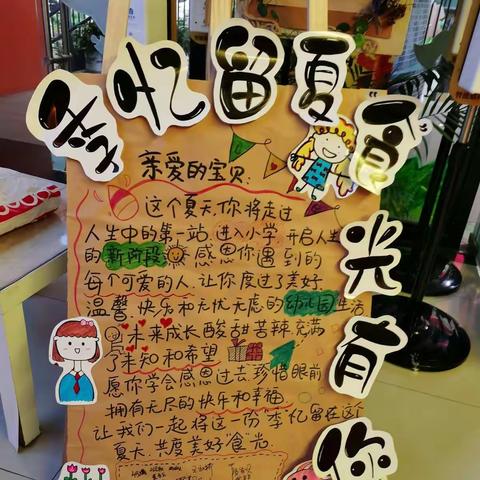 季忆留夏
食光有你
亲爱的宝贝:
这个夏天,你将走过
人生中的第一站,进入小学,开启人生
的新阶段 感恩你遇到的
每个可爱的人,让你度过了美好
温馨、快乐和无忧无虑的幼儿园生活
未来成长酸甜苦辣,充满
了未知和希望
愿你学会感恩过去,珍惜眼前
拥有无尽的快乐和幸福
让我们一起将这一份"季"忆留在这个
夏天,共度美好"食"光